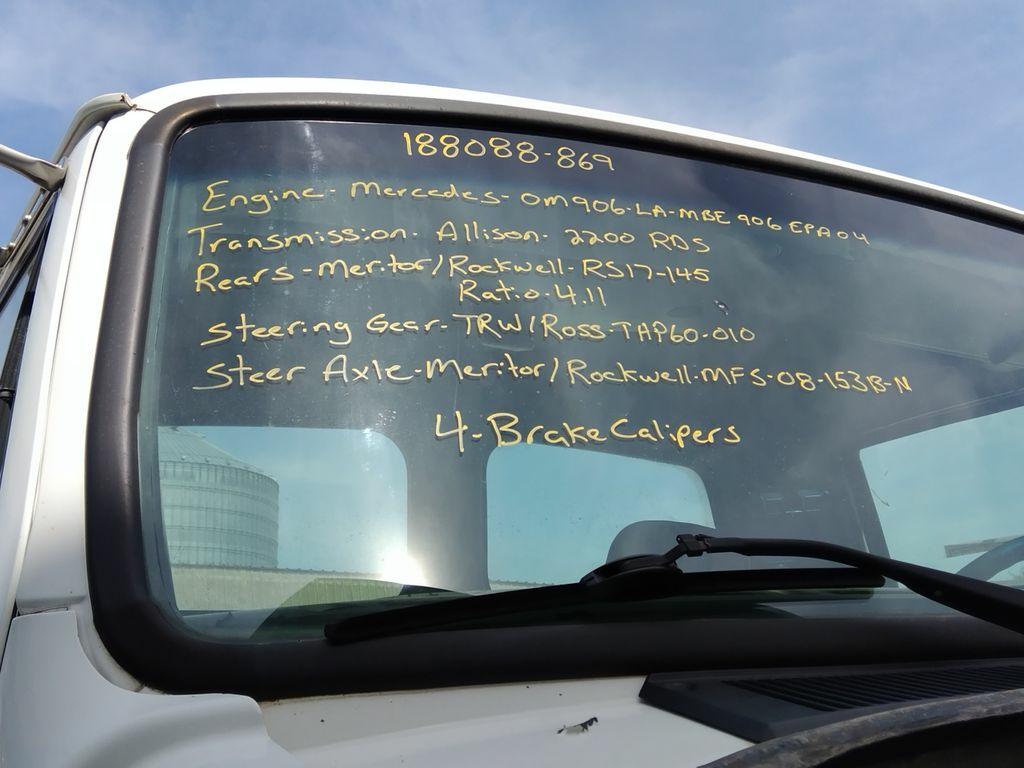 188088-869
Engine- Mercedes- OM906-LA-MBE 906 EPA04
Transmission- Allison- 2200 RDS
Rears-Meritor/Rockwell-RS17-145
Ratio-4.11
Steering Gear-TRW/Ross-TAP60-010
Steer Axle-Meritor/Rockwell-MFS-08-153B-N
4-Brake Calipers